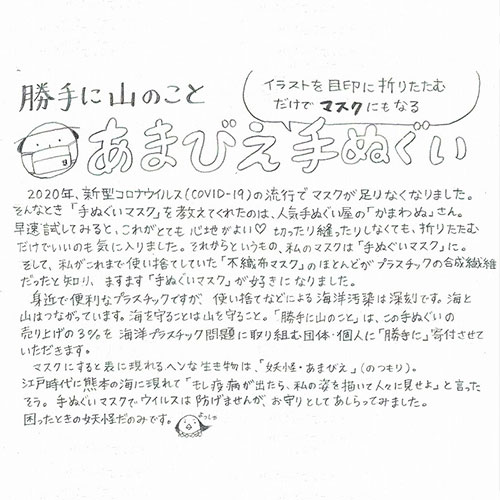 勝手に山のこと
イラストを目印に折りたたむ
だけでマスクにもなる
あまびえ手ぬぐい
2020年、新型コロナウイルス(COVID-19)の流行でマスクが足りなくなりました。
そんなとき「手ぬぐいマスク」を教えてくれたのは、人気手ぬぐい屋の「かまわぬ」さん。
早速試してみると、これがとても心地がよい♡ 切ったり縫ったりしなくても、折りたたむ
だけでいいのも気に入りました。それからというもの、私のマスクは「手ぬぐいマスク」に。
そして、私がこれまで使い捨てしていた「不織布マスク」のほとんどがプラスチックの合成繊維
だったと知り、ますます「手ぬぐいマスク」が好きになりました。
身近で便利なプラスチックですが、使い捨てなどによる海洋汚染は深刻です。海と
山はつながっています。海を守ることは山を守ること。「勝手に山のこと」は、この手ぬぐいの
売り上げの3%を海洋プラスチック問題に取り組む団体・個人に「勝手に」寄付させて
いただきます。
マスクにすると表に現れるヘンな生き物は、「妖怪・あまびえ」(のつもり)。
江戸時代に熊本の海に現れて「もし疫病が出たら、私の姿を描いて人々に見せよ」と言った
そう。手ぬぐいマスクでウイルスは防げませんが、お守りとしてあしらってみました。
困ったときの妖怪だのみです。